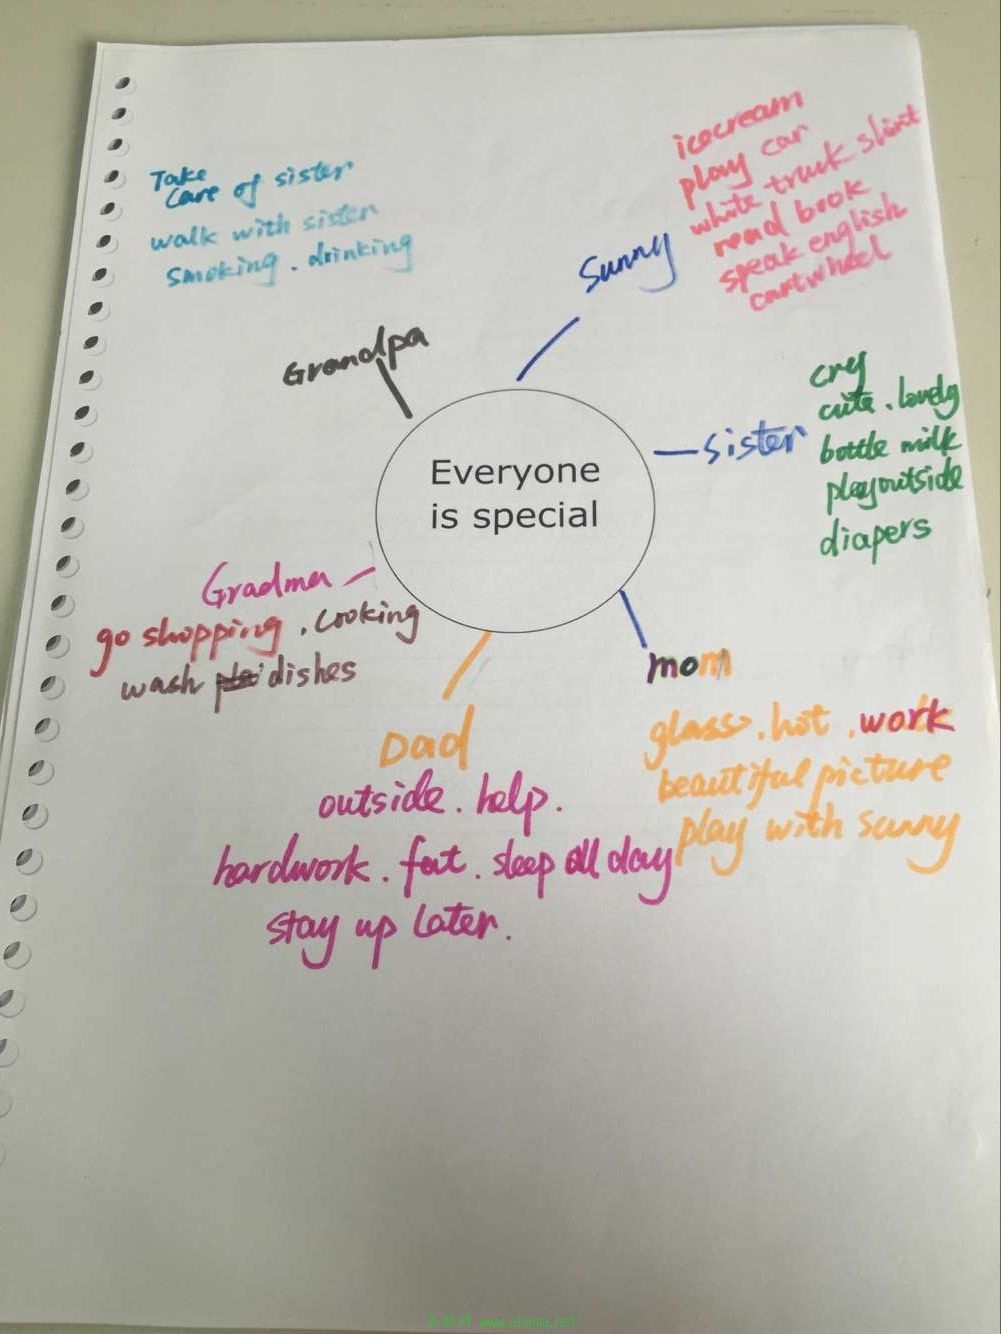 Everyone
is special
Sunny
icecream
play car
white truck shirt
read book
speak english
cartwheel
sister
cry
cute . lovely
bottle milk
play outside
diapers
mom
glass . hot . work
beautiful picture
play with sunny
Dad
outside . help .
hardwork . fat . sleep all day
stay up later .
Gradma
go shopping . cooking
wash dishes
Grandpa
Take
care of sister
walk with sister
smoking . drinking
www.ebama.net